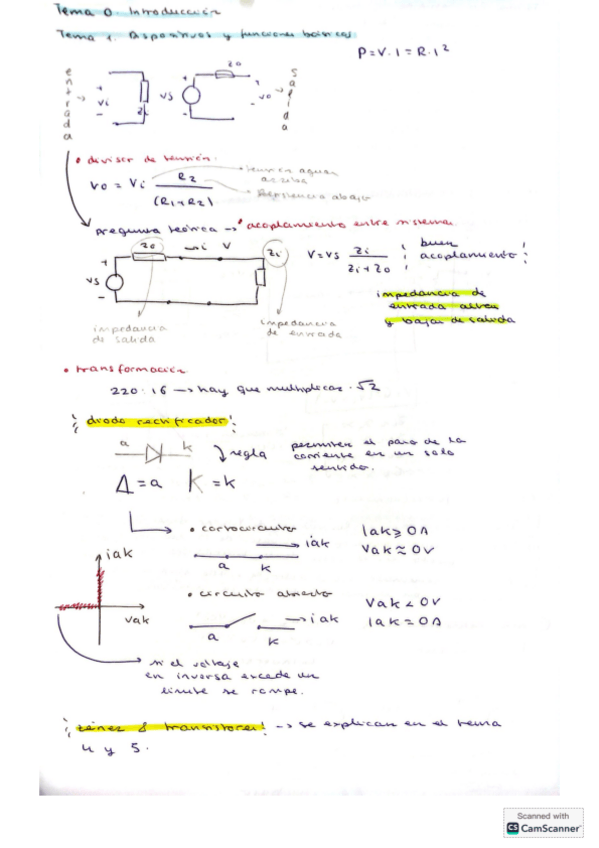 Tema 0. Introducción
Tema 1. Dispositivos y funciones básicas.
P = V·I = R·I²
entrada
+
Vi
-
Zi
VS
+
-
Zo
+
Vo
-
salida
• divisor de tensión:
Vo = Vi R2 / (R1+R2)
tensión aguas arriba
Resistencia abajo
Pregunta teórica → • acoplamiento entre sistemas
+
VS
-
Zo
→ i
V
Zi
V = VS Zi / Zi + Zo
¡ buen acoplamiento !
impedancia de salida
impedancia de entrada
impedancia de
entrada altas
y bajas de salida
• transformación
220:16 → hay que multiplicar · √2
¡ diodo rectificador !
a
k
regla
permiten el paso de la
corriente en un solo
sentido.
Δ = a K = k
• cortocircuito
iak
a
k
iak ≥ 0A
Vak ≈ 0V
iak
Vak
• circuito abierto
iak
a
k
Vak < 0V
iak = 0A
si el voltaje
en inversa excede un
límite se rompe.
¡ zéner & transistores ! → se explican en el tema
4 y 5.
Scanned with
CS CamScanner